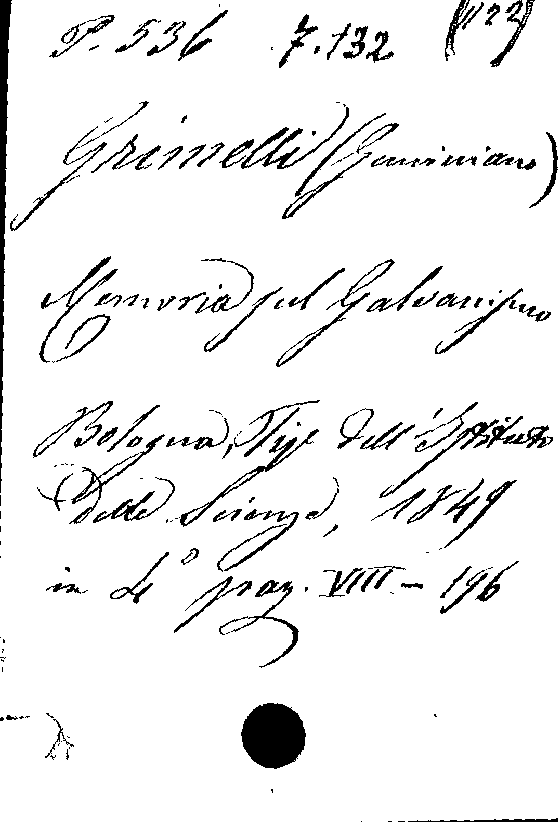 P. 536 7.132
Grimelli (Geminiano)
Memoria sul Galvanismo
Bologna, Tip. dell'Istituto
delle Scienze, 1849
in 4° pag. VIII - 196